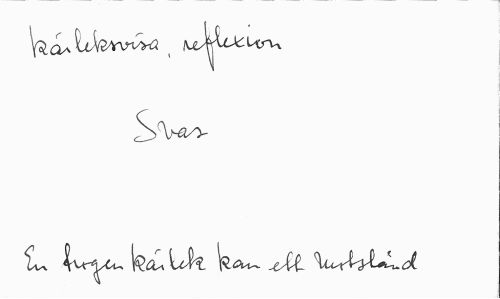 kärleksvisa, reflexion
Svar
En trogen kärlek kan ett motstånd